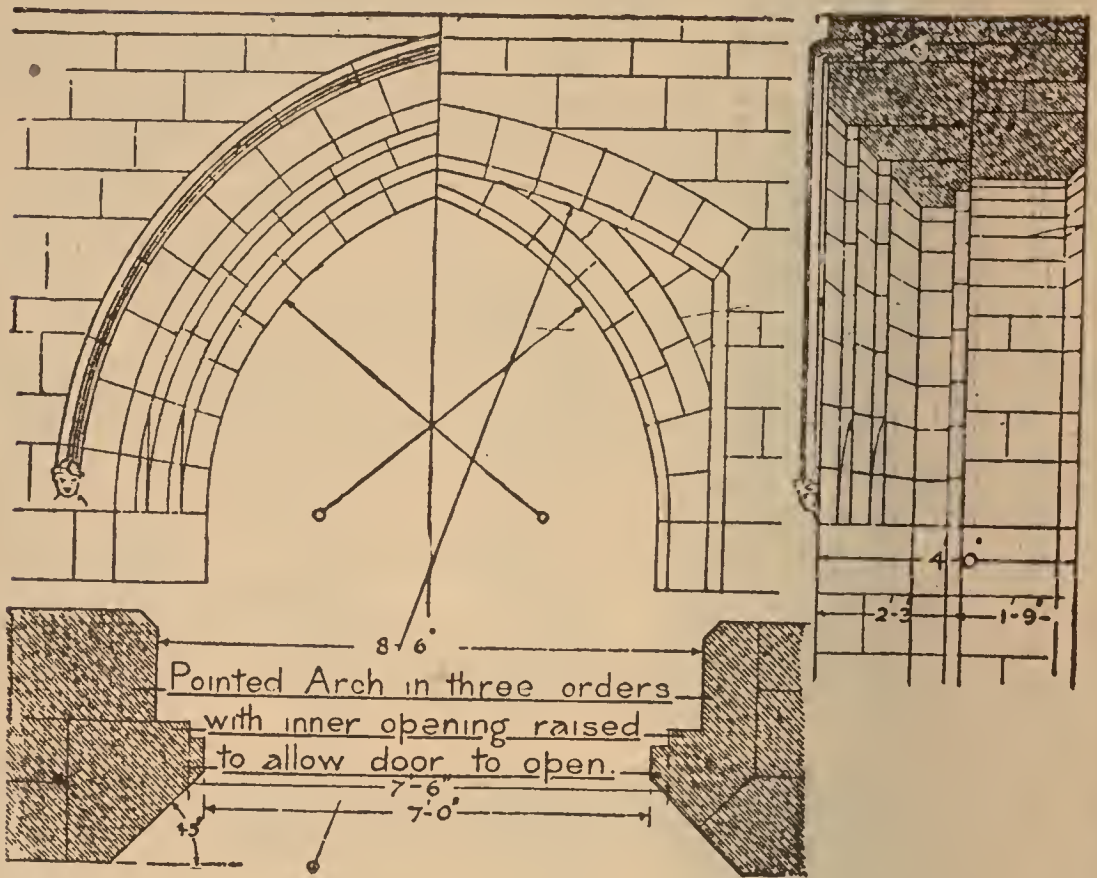 4'-0"
2'-3"
1'-9"
8'-6"
Pointed Arch in three orders
with inner opening raised
to allow door to open.
7'-6"
7'-0"
45°